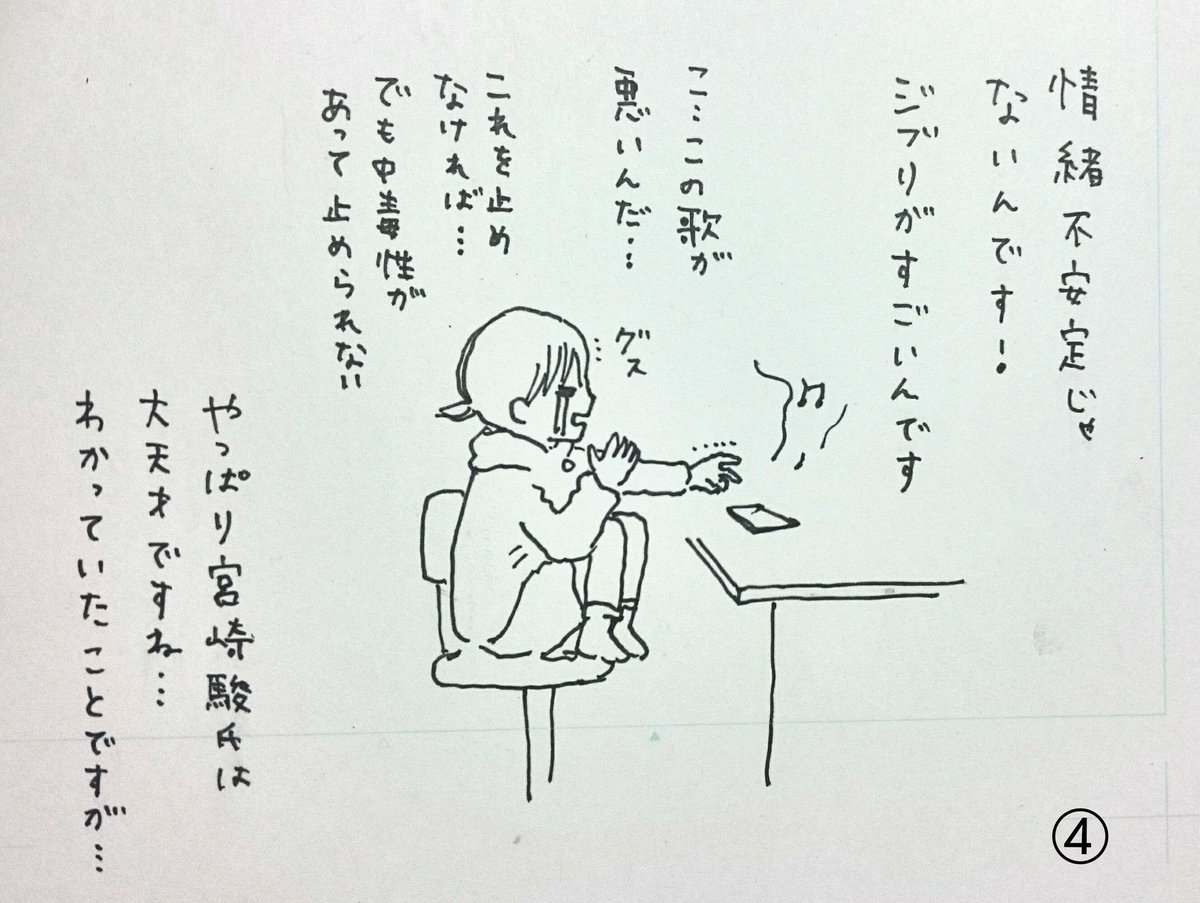 情緒不安定じゃ
ないんです!
ジブリがすごいんです
こ…この歌が
悪いんだ…
これを止め
なければ…
でも中毒性が
あって止められない
グス
やっぱり宮崎駿氏は
大天才ですね…
わかっていたことですが…
④